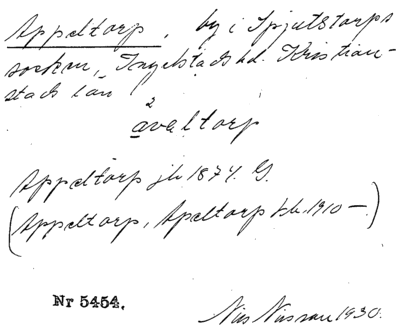 Appeltorp, by i Spjutstorps
socken, Ingelstads hd. Kristian-
stads län
2
avaltorp
Appeltorp jb 1874. G.
(Appeltorp, Apeltorp kb. 1910 –)
Nr 5454.
Nils Nilsson 1930.